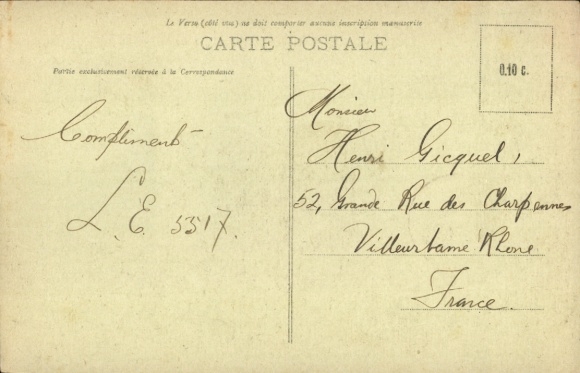 Le Verso (côté vue) ne doit comporter aucune inscription manuscrite
CARTE POSTALE
Partie exclusivement réservée à la Correspondance
0.10 c.
Compliment
L.E. 5517.
Monsieur
Henri Gicquel,
52, Grande Rue des Charpennes
Villeurbanne Rhone
France.